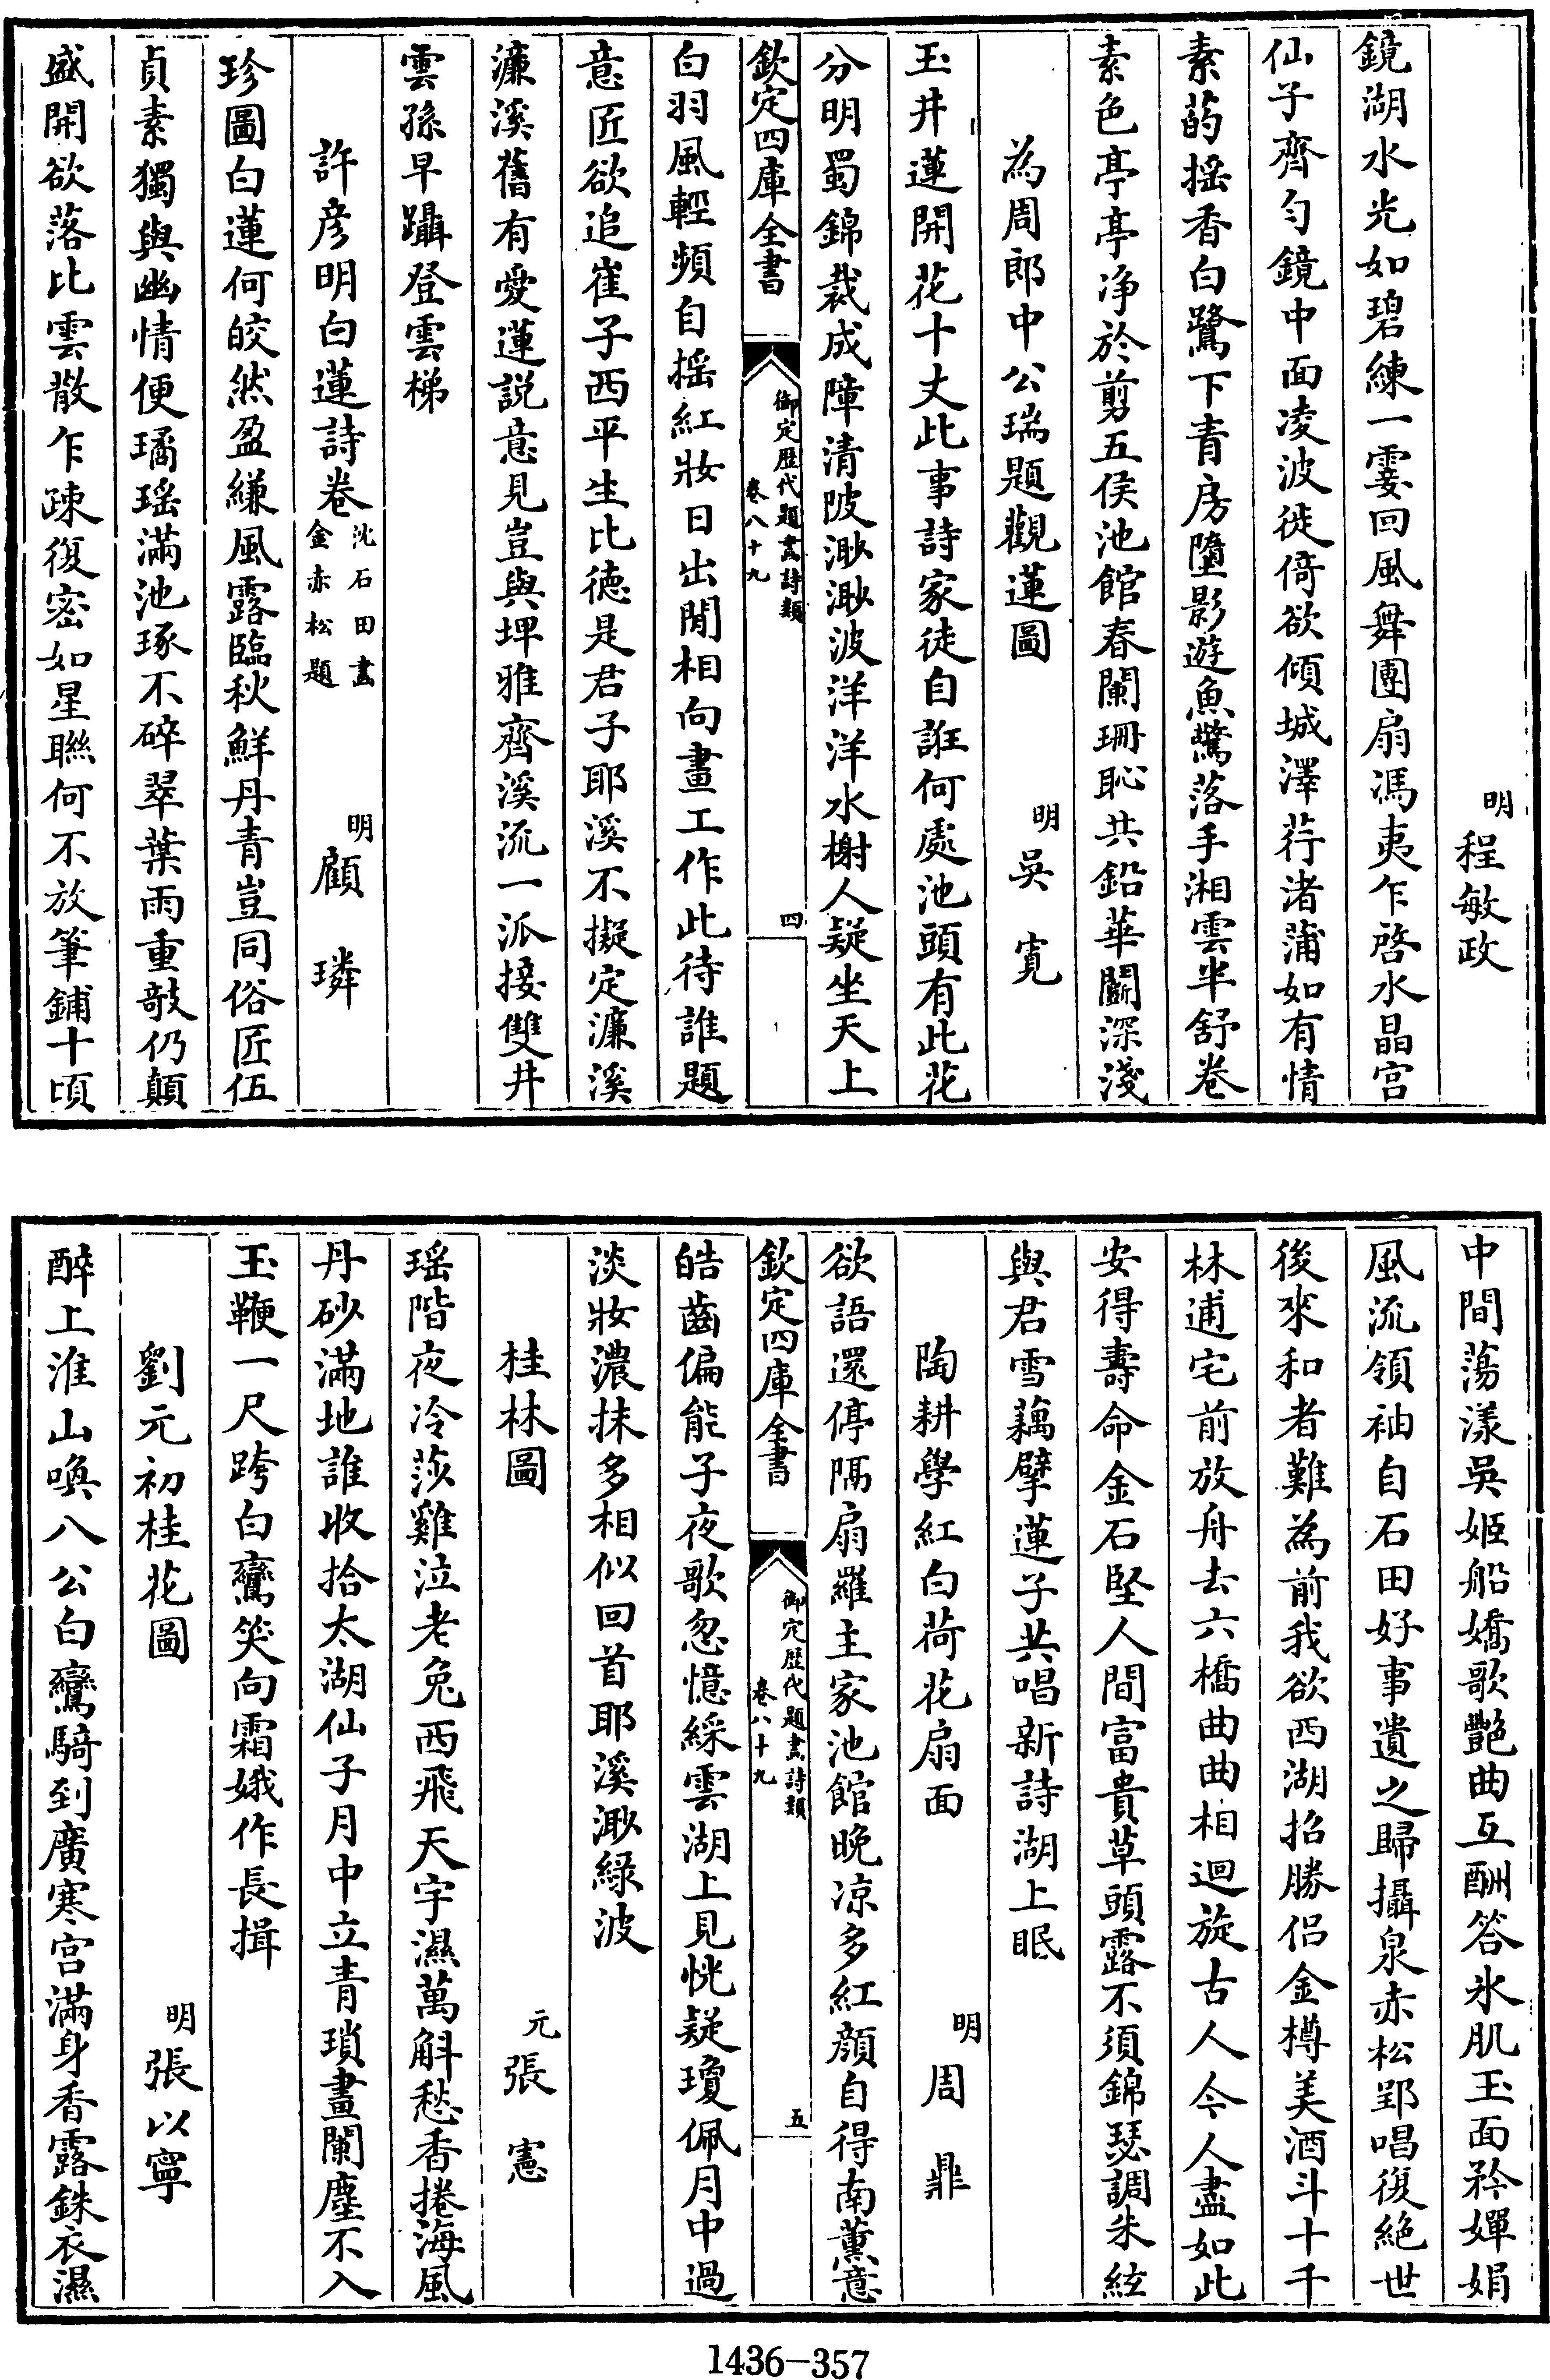 明程敏政
鏡湖水光如碧練一霎回風舞團扇馮夷乍啓水晶宫
仙子齊勻鏡中面凌波徙倚欲傾城澤荇渚蒲如有情
素菂揺香白鷺下青房墮影遊魚驚落手湘雲半舒卷
素色亭亭净於剪五侯池館春闌珊恥共鉛華鬭深淺
為周郎中公瑞題觀蓮圖 明吳寛
玉井蓮開花十丈此事詩家徒自誑何處池頭有此花
分明蜀錦裁成障清陂渺渺波洋洋水榭人疑坐天上
欽定四庫全書 御定歴代題畫詩類 卷八十九 四
白羽風輕頻自揺紅妝日出閒相向畫工作此待誰題
意匠欲追崔子西平生比德是君子耶溪不擬定濂溪
濂溪舊有愛蓮説意見豈與埤雅齊溪流一派接雙井
雲孫早躡登雲梯
許彦明白蓮詩卷 沈石田畫 金赤松題 明顧璘
珍圖白蓮何皎然盈縑風露臨秋鮮丹青豈同俗匠伍
貞素獨與幽情便璚瑶滿池琢不碎翠葉雨重敧仍顛
盛開欲落比雲散乍疎復密如星聯何不放筆鋪十頃
中間蕩漾吳姬船嬌歌艷曲互酬答氷肌玉面矜嬋娟
風流領袖自石田好事遺之歸攝泉赤松郢唱復絶世
後来和者難為前我欲西湖招勝侣金樽美酒斗十千
林逋宅前放舟去六橋曲曲相迴旋古人今人盡如此
安得壽命金石堅人間富貴草頭露不須錦瑟調朱絃
與君雪藕擘蓮子共唱新詩湖上眠
陶耕學紅白荷花扇面 明周鼎
欲語還停隔扇羅主家池館晚凉多紅顔自得南薰意
欽定四庫全書 御定歴代題畫詩類 卷八十九 五
皓齒偏能子夜歌忽憶綵雲湖上見恍疑瓊佩月中過
淡妝濃抹多相似回首耶溪渺緑波
桂林圖 元張憲
瑶階夜冷莎雞泣老兔西飛天宇濕萬斛愁香捲海風
丹砂滿地誰收拾太湖仙子月中立青瑣畫闌塵不入
玉鞭一尺跨白鸞笑向霜娥作長揖
劉元初桂花圖 明張以寧
醉上淮山喚八公白鸞騎到廣寒宫滿身香露銖衣濕
1436-357